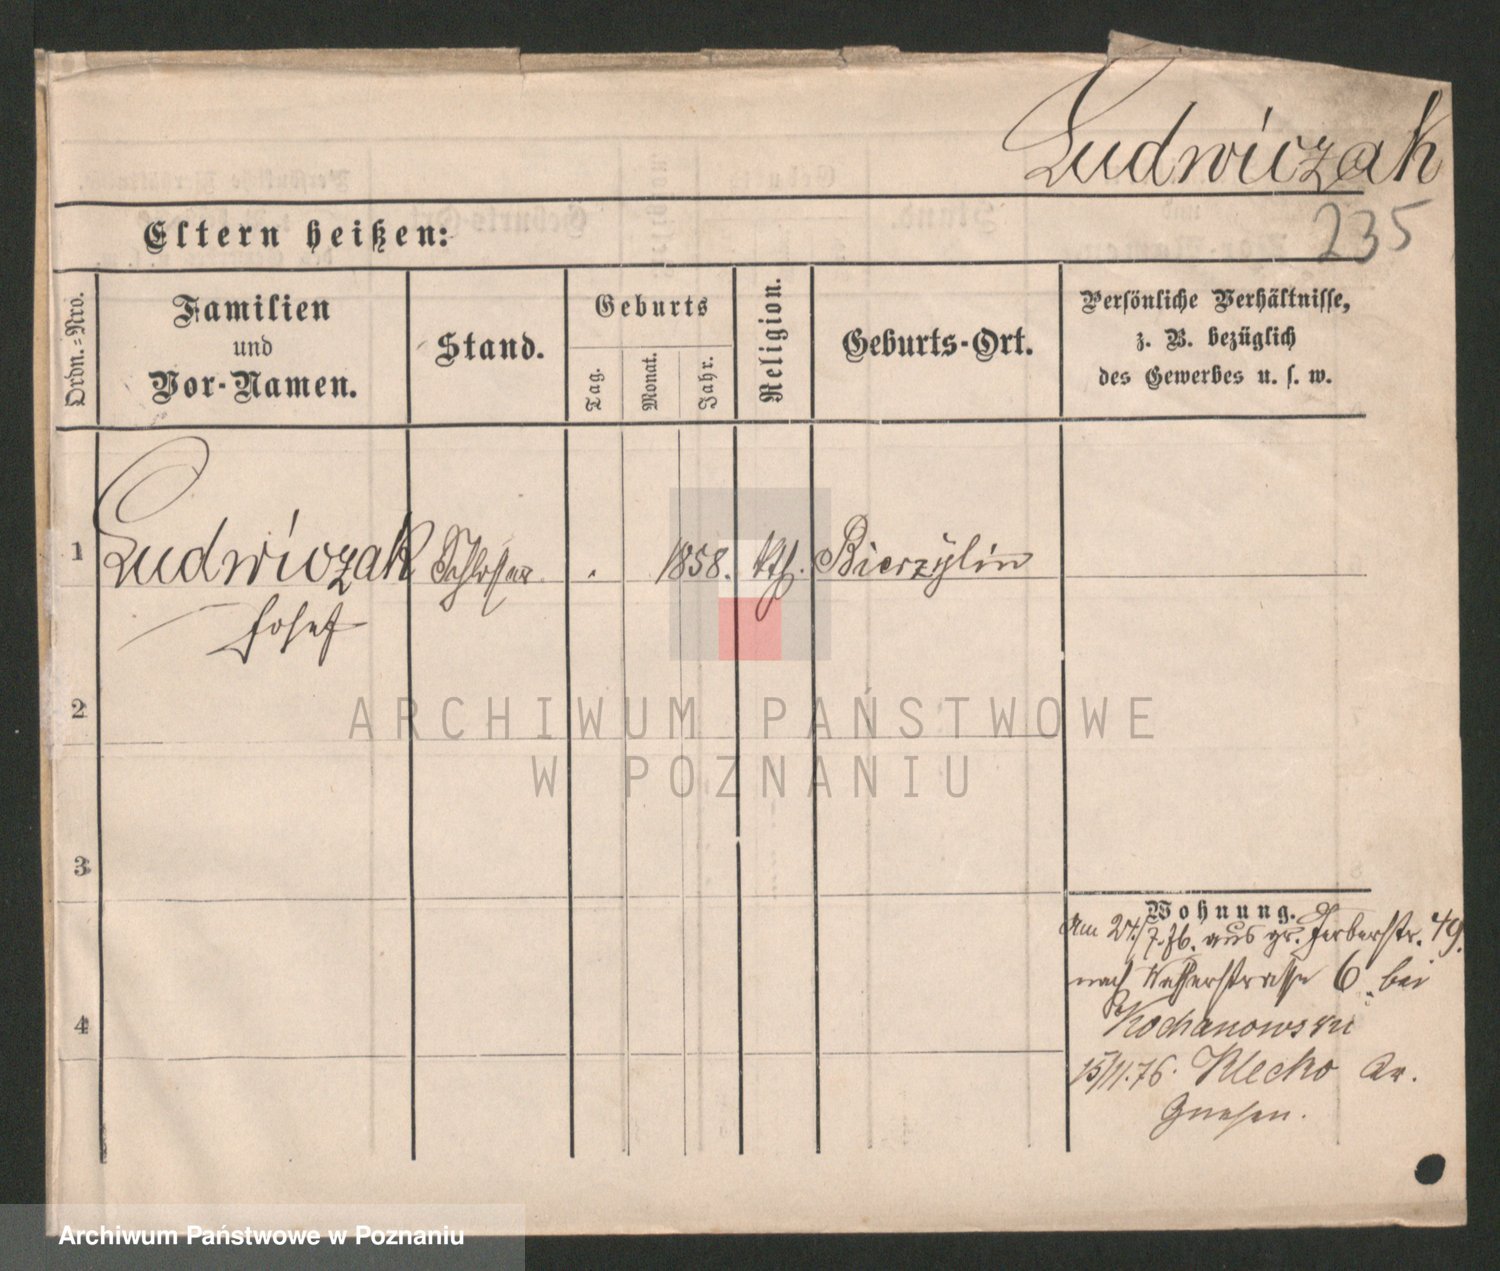 Ludwiczak
235
Eltern heißen:
Ordn.-Nro.
Familien
und
Vor-Namen.
Stand.
Geburts
Tag.
Monat.
Jahr.
Religion.
Geburts-Ort.
Persönliche Verhältnisse,
z. B. bezüglich
des Gewerbes u. s. w.
1
Ludwiczak Schlosser . 1858. kth. Bierzylin
Josef
2
ARCHIWUM PAŃSTWOWE
W POZNANIU
3
Wohnung.
Am 24/7.76. aus gr. Gerberstr. 49.
nach Wasserstrasse 6. bei
4
Kochanowski
15/11.76. Klecko Kr.
Gnesen.
Archiwum Państwowe w Poznaniu